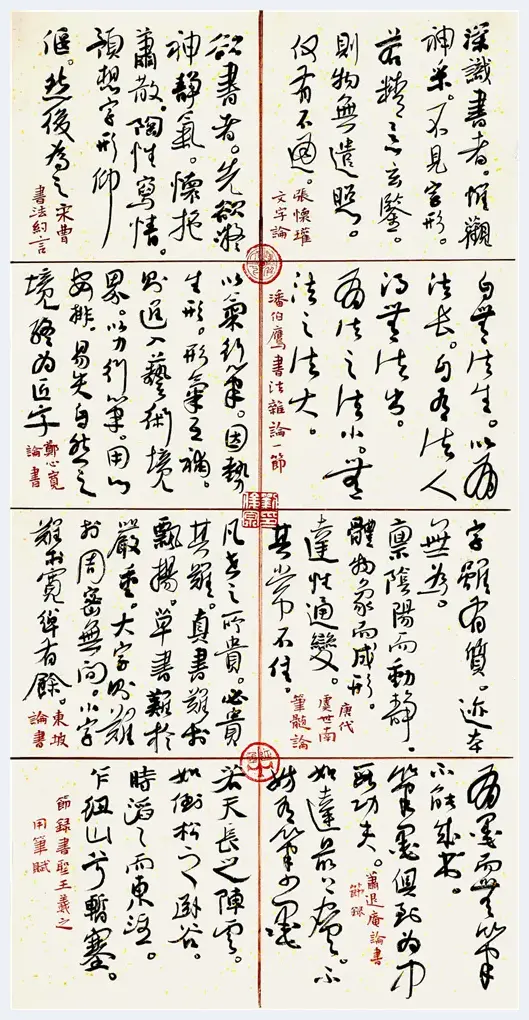 深識書者。惟觀
神采。不見字形。
若精意玄鑒。
則物無遺照。
何有不通。
張懷瓘
文字論
欲書者。先欲凝
神靜氣。懷抱
蕭散。陶性寫情。
預想字形仰
偃。然後為之
宋曹
書法約言
自無法生。以有
法長。自有法入
得無法出。
有法之法小。無
法之法大。
潘伯鷹書法雜論一節
以氣行筆。因勢
生形。形氣互補。
則進入藝術境
界。以力行筆。用心
安排。易失自然之
境終為匠字
鄭心寬
論書
字雖有質。迹本
無為。
稟陰陽而動靜。
體物象而成形。
達性通變。
其常不住。
唐代
虞世南
筆髓論
凡世之所貴。必貴
其難。真書難於
飄揚。草書難於
嚴重。大字則難
於周密無間。小字
難於寬綽有餘。
東坡
論書
有墨而無筆
不能成書。
筆墨俱到為中
段功夫。
如達最上處。不
妨有筆少墨
蕭退庵論書
節錄
若天長之陣雲。
如倒松之臥谷。
時滔〻而東注。
乍紐山兮暫塞。
節録書聖王羲之
用筆賦